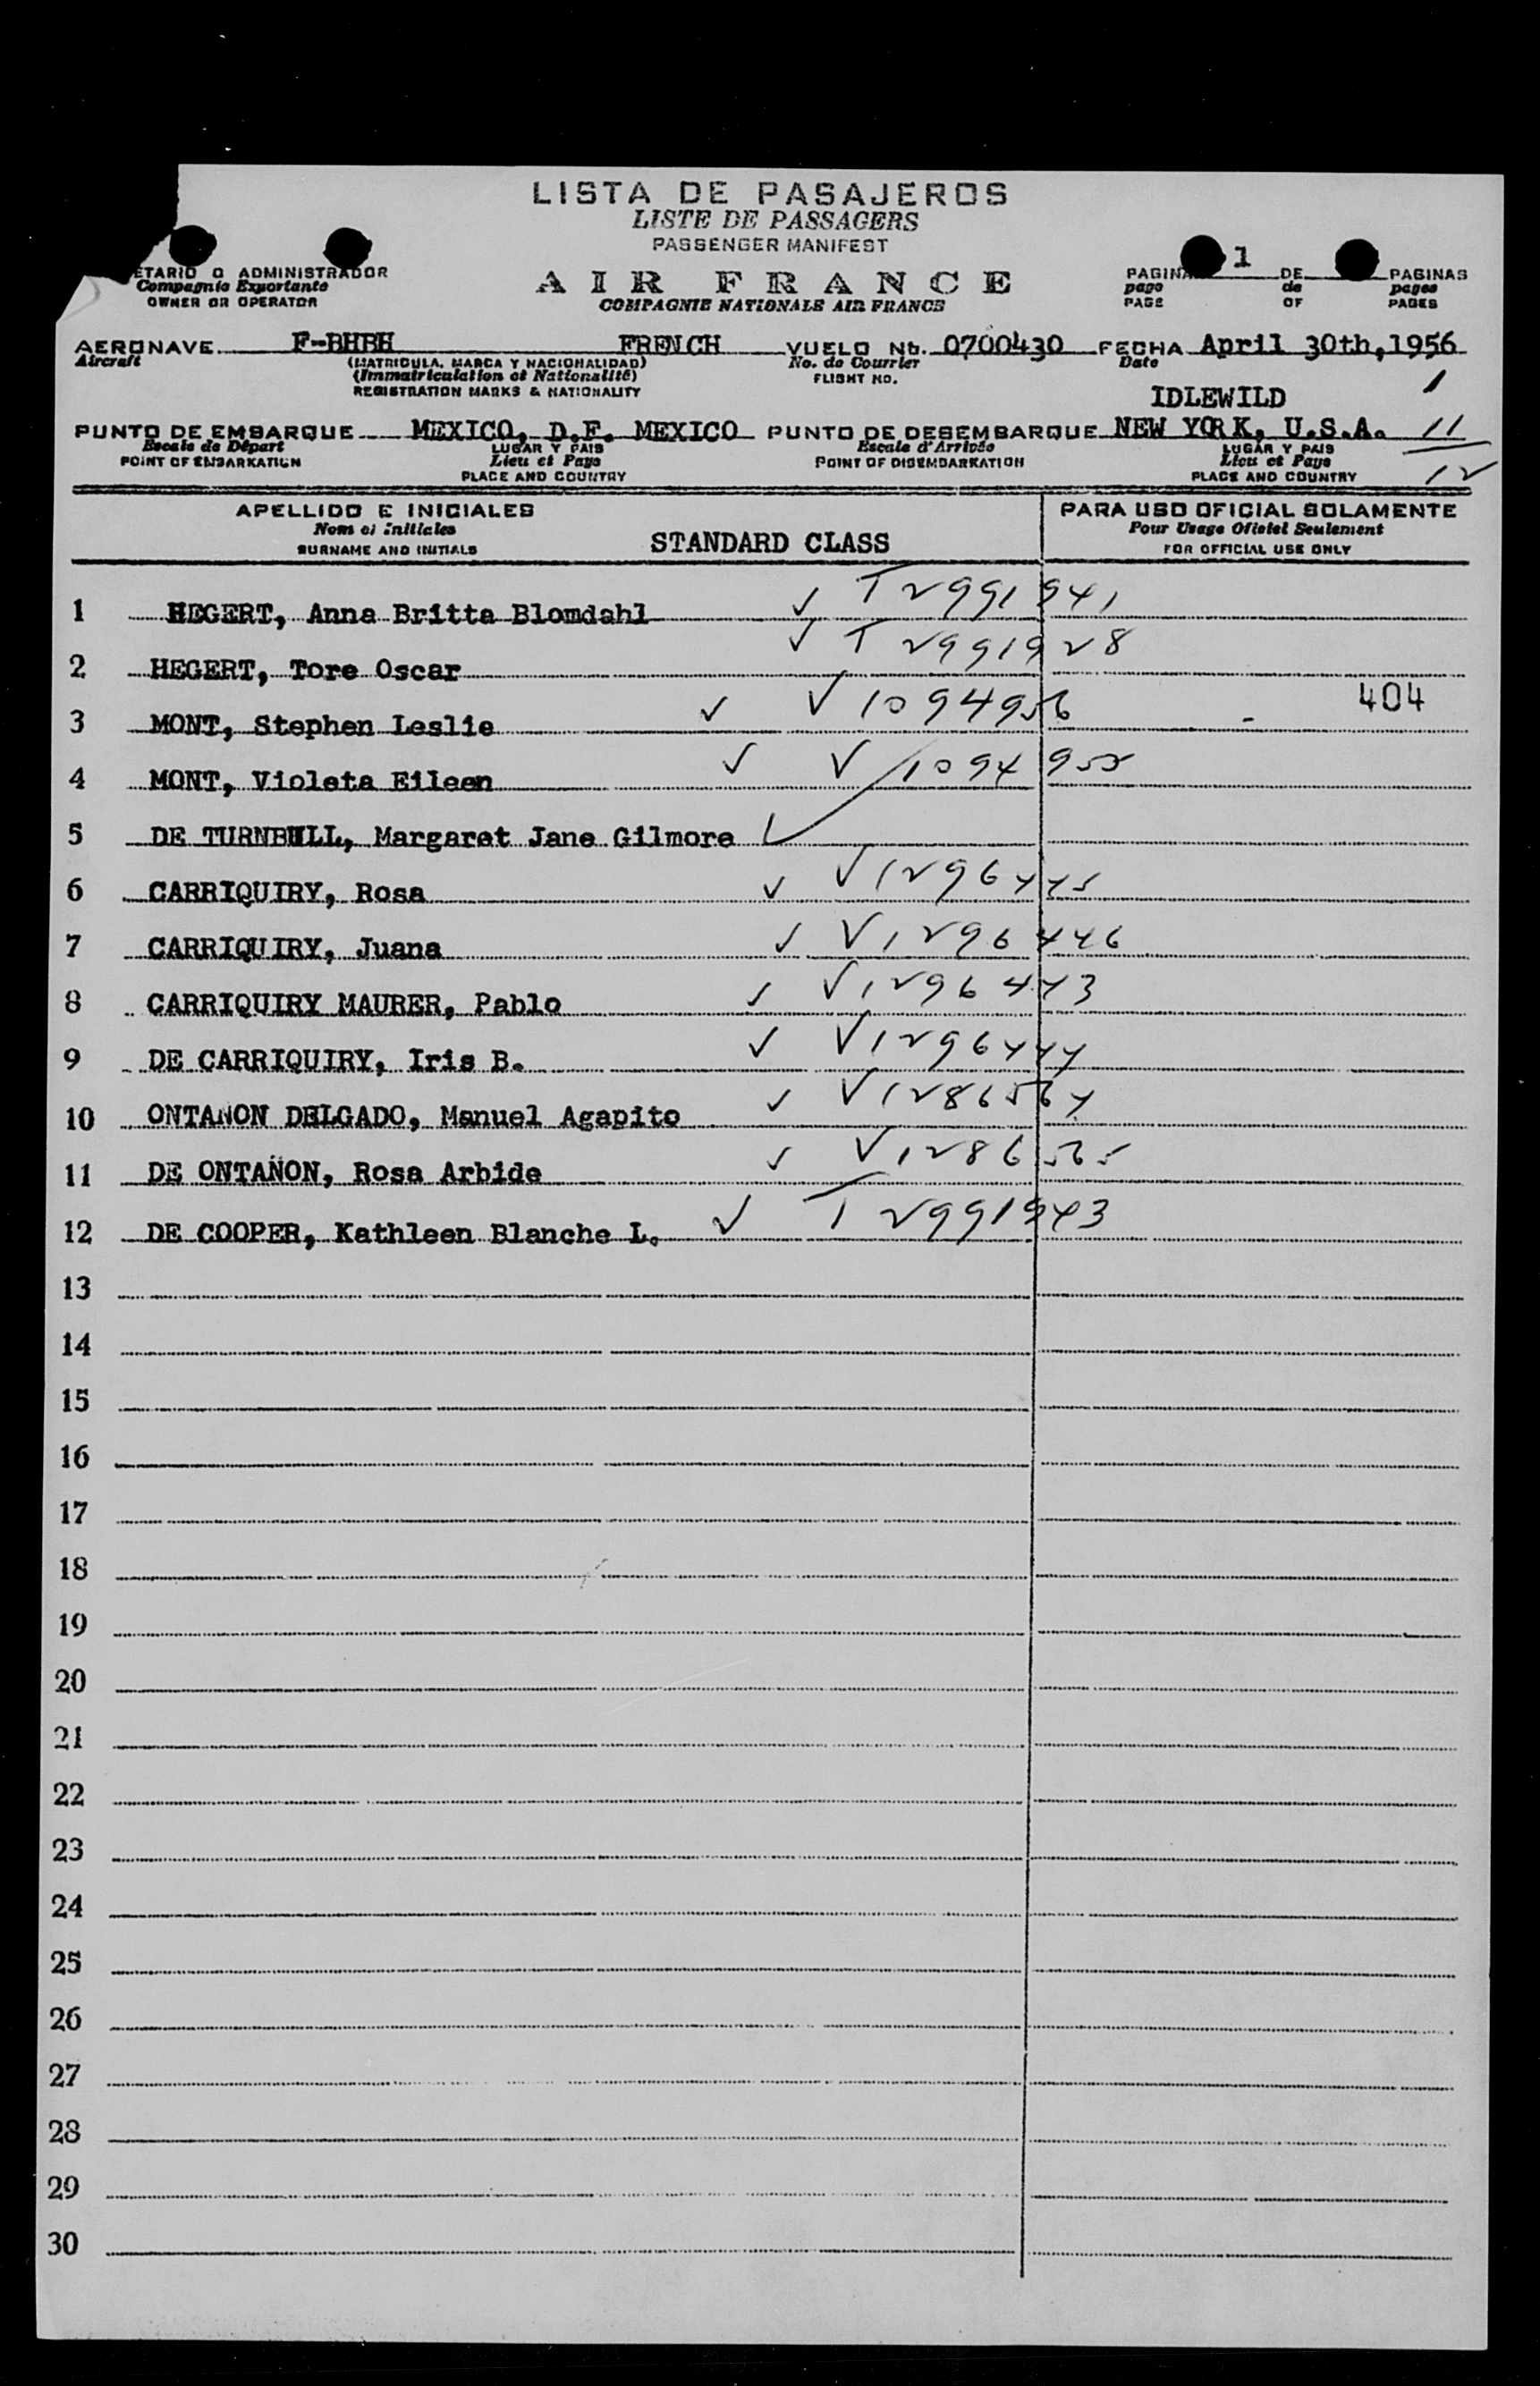 LISTA DE PASAJEROS
LISTE DE PASSAGERS
PASSENGER MANIFEST
ETARIO O ADMINISTRADOR
Compagnie Exportante
OWNER OR OPERATOR
AIR FRANCE
COMPAGNIE NATIONALE AIR FRANCE
PAGINA 1 DE PAGINAS
page de pages
PAGE OF PAGES
AERONAVE F-BHBH FRENCH VUELO No. 0700430 FECHA April 30th, 1956
Aircraft (MATRICULA, MARCA Y NACIONALIDAD) No. de Courrier Date
(Immatriculation et Nationalité) FLIGHT NO.
REGISTRATION MARKS & NATIONALITY
IDLEWILD 1
PUNTO DE EMBARQUE MEXICO, D.F. MEXICO PUNTO DE DESEMBARQUE NEW YORK, U.S.A. 11
Escale de Départ LUGAR Y PAIS Escale d'Arrivée LUGAR Y PAIS
POINT OF EMBARKATION Lieu et Pays POINT OF DISEMBARKATION Lieu et Pays
PLACE AND COUNTRY PLACE AND COUNTRY 12
APELLIDO E INICIALES PARA USO OFICIAL SOLAMENTE
Nom et Initiales Pour Usage Oficiel Seulement
SURNAME AND INITIALS STANDARD CLASS FOR OFFICIAL USE ONLY
1 HEGERT, Anna Britta Blomdahl ✓ T2991941
2 HEGERT, Tore Oscar ✓ T2991928
3 MONT, Stephen Leslie ✓ V1094956 - 404
4 MONT, Violeta Eileen ✓ V1094955
5 DE TURNBULL, Margaret Jane Gilmore ✓
6 CARRIQUIRY, Rosa ✓ V1296445
7 CARRIQUIRY, Juana ✓ V1296446
8 CARRIQUIRY MAURER, Pablo ✓ V1296443
9 DE CARRIQUIRY, Iris B. ✓ V1296444
10 ONTAÑON DELGADO, Manuel Agapito ✓ V1286564
11 DE ONTAÑON, Rosa Arbide ✓ V1286565
12 DE COOPER, Kathleen Blanche L. ✓ T2991943
13
14
15
16
17
18
19
20
21
22
23
24
25
26
27
28
29
30